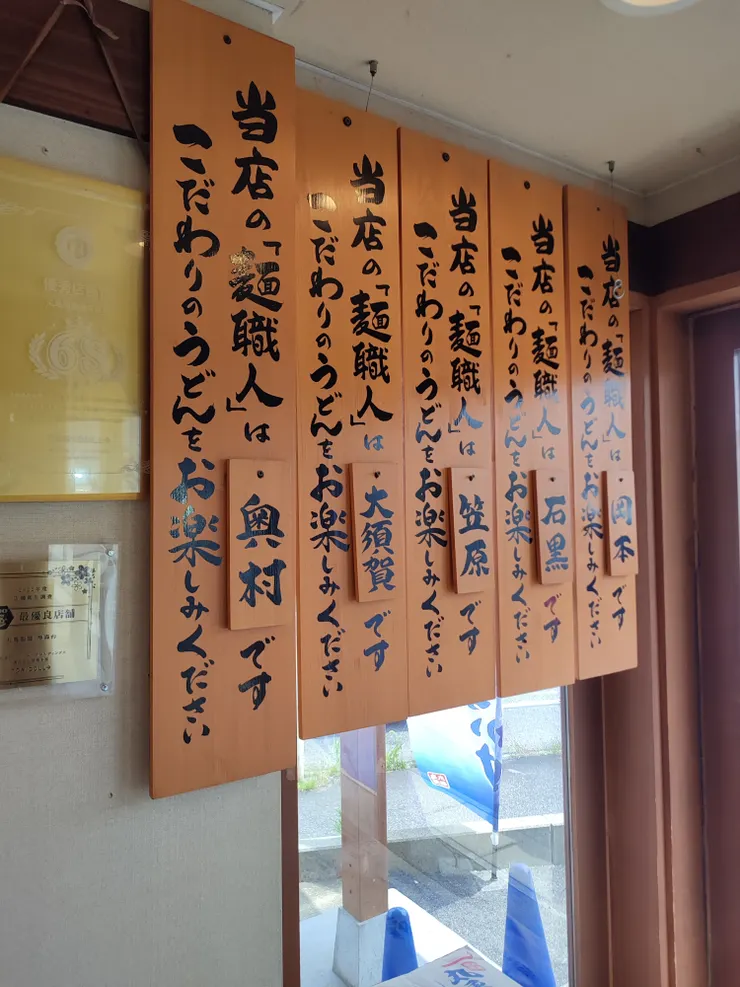 当店の「麺職人」は
奥村
です
こだわりのうどんを
お楽しみください
当店の「麺職人」は
大須賀
です
こだわりのうどんを
お楽しみください
当店の「麺職人」は
笠原
です
こだわりのうどんを
お楽しみください
当店の「麺職人」は
石黒
です
こだわりのうどんを
お楽しみください
当店の「麺職人」は
岡本
です
こだわりのうどんを
お楽しみください
最優良店舗